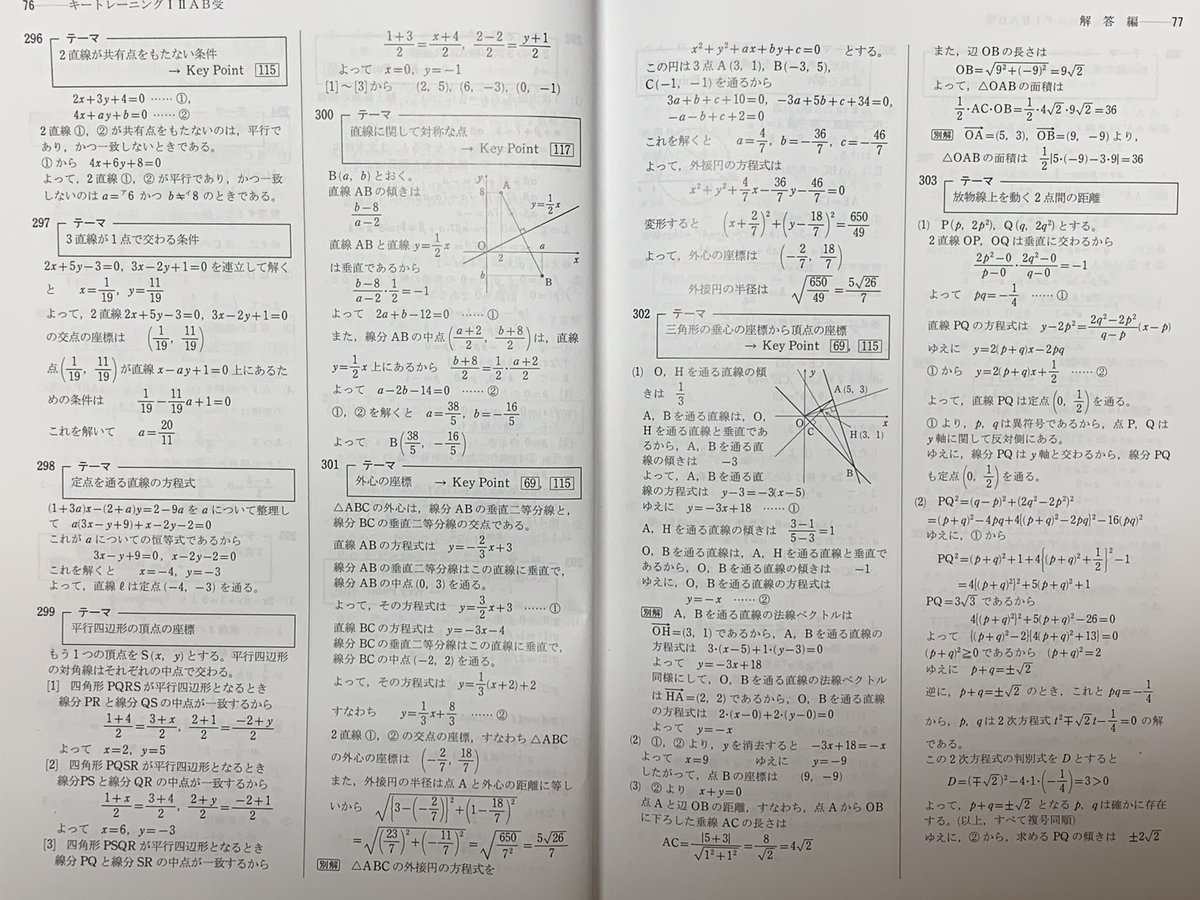 76――キートレーニングⅠⅡAB受
296 テーマ
2直線が共有点をもたない条件
→ Key Point 115
2x+3y+4=0 …… ①,
4x+ay+b=0 …… ②
2直線①, ②が共有点をもたないのは, 平行で
あり, かつ一致しないときである。
①から 4x+6y+8=0
よって, 2直線①, ②が平行であり, かつ一致
しないのは a=6 かつ b≠8 のときである。
297 テーマ
3直線が1点で交わる条件
2x+5y-3=0, 3x-2y+1=0 を連立して解く
と x=1/19, y=11/19
よって, 2直線 2x+5y-3=0, 3x-2y+1=0
の交点の座標は (1/19, 11/19)
点(1/19, 11/19)が直線 x-ay+1=0 上にあるた
めの条件は 1/19-11/19a+1=0
これを解いて a=20/11
298 テーマ
定点を通る直線の方程式
(1+3a)x-(2+a)y=2-9a を a について整理し
て a(3x-y+9)+x-2y-2=0
これが a についての恒等式であるから
3x-y+9=0, x-2y-2=0
これを解くと x=-4, y=-3
よって, 直線ℓは定点(-4, -3)を通る。
299 テーマ
平行四辺形の頂点の座標
もう1つの頂点を S(x, y) とする。平行四辺形
の対角線はそれぞれの中点で交わる。
[1] 四角形 PQRS が平行四辺形となるとき
線分 PR と線分 QS の中点が一致するから
(1+4)/2=(3+x)/2, (2+1)/2=(-2+y)/2
よって x=2, y=5
[2] 四角形 PQSR が平行四辺形となるとき
線分PSと線分 QR の中点が一致するから
(1+x)/2=(3+4)/2, (2+y)/2=(-2+1)/2
よって x=6, y=-3
[3] 四角形 PSQR が平行四辺形となるとき
線分 PQ と線分 SR の中点が一致するから
(1+3)/2=(x+4)/2, (2-2)/2=(y+1)/2
よって x=0, y=-1
[1]～[3]から (2, 5), (6, -3), (0, -1)
300 テーマ
直線に関して対称な点
→ Key Point 117
B(a, b) とおく。
直線 AB の傾きは
(b-8)/(a-2)
直線 AB と直線 y=1/2x
は垂直であるから
(b-8)/(a-2)・1/2=-1
y
8
A
y=1/2x
O
2
a
x
b
B
よって 2a+b-12=0 …… ①
また, 線分 AB の中点((a+2)/2, (b+8)/2)は, 直線
y=1/2x 上にあるから (b+8)/2=1/2・(a+2)/2
よって a-2b-14=0 …… ②
①, ②を解くと a=38/5, b=-16/5
よって B(38/5, -16/5)
301 テーマ
外心の座標 → Key Point 69, 115
△ABC の外心は, 線分 AB の垂直二等分線と,
線分 BC の垂直二等分線の交点である。
直線 AB の方程式は y=-2/3x+3
線分 AB の垂直二等分線はこの直線に垂直で,
線分 AB の中点(0, 3)を通る。
よって, その方程式は y=3/2x+3 …… ①
直線 BC の方程式は y=-3x-4
線分 BC の垂直二等分線はこの直線に垂直で,
線分 BC の中点(-2, 2)を通る。
よって, その方程式は y=1/3(x+2)+2
すなわち y=1/3x+8/3 …… ②
2直線①, ②の交点の座標, すなわち △ABC
の外心の座標は (-2/7, 18/7)
また, 外接円の半径は点 A と外心の距離に等し
いから √({3-(-2/7)}²+(1-18/7)²)
=√((23/7)²+(-11/7)²)=√(650/7²)=5√26/7
別解 △ABC の外接円の方程式を
解答編――77
x²+y²+ax+by+c=0 とする。
この円は3点 A(3, 1), B(-3, 5),
C(-1, -1)を通るから
3a+b+c+10=0, -3a+5b+c+34=0,
-a-b+c+2=0
これを解くと a=4/7, b=-36/7, c=-46/7
よって, 外接円の方程式は
x²+y²+4/7x-36/7y-46/7=0
変形すると (x+2/7)²+(y-18/7)²=650/49
よって, 外心の座標は (-2/7, 18/7)
外接円の半径は √(650/49)=5√26/7
302 テーマ
三角形の垂心の座標から頂点の座標
→ Key Point 69, 115
(1) O, H を通る直線の傾
きは 1/3
A, B を通る直線は, O,
H を通る直線と垂直であ
るから, A, B を通る直
線の傾きは -3
よって, A, B を通る直
線の方程式は y-3=-3(x-5)
y
A(5, 3)
O
C
x
H(3, 1)
B
ゆえに y=-3x+18 …… ①
A, H を通る直線の傾きは (3-1)/(5-3)=1
O, B を通る直線は, A, H を通る直線と垂直で
あるから, O, B を通る直線の傾きは -1
ゆえに, O, B を通る直線の方程式は
y=-x …… ②
別解 A, B を通る直線の法線ベクトルは
OH→=(3, 1) であるから, A, B を通る直線の
方程式は 3・(x-5)+1・(y-3)=0
よって y=-3x+18
同様にして, O, B を通る直線の法線ベクトル
は HA→=(2, 2) であるから, O, B を通る直線
の方程式は 2・(x-0)+2・(y-0)=0
よって y=-x
(2) ①, ②より, y を消去すると -3x+18=-x
よって x=9 ゆえに y=-9
したがって, 点 B の座標は (9, -9)
(3) ②より x+y=0
点 A と辺 OB の距離, すなわち, 点 A から OB
に下ろした垂線 AC の長さは
AC=|5+3|/√(1²+1²)=8/√2=4√2
また, 辺 OB の長さは
OB=√(9²+(-9)²)=9√2
よって, △OAB の面積は
1/2・AC・OB=1/2・4√2・9√2=36
別解 OA→=(5, 3), OB→=(9, -9) より,
△OAB の面積は 1/2|5・(-9)-3・9|=36
303 テーマ
放物線上を動く2点間の距離
(1) P(p, 2p²), Q(q, 2q²) とする。
2直線 OP, OQ は垂直に交わるから
(2p²-0)/(p-0)・(2q²-0)/(q-0)=-1
よって pq=-1/4 …… ①
直線 PQ の方程式は y-2p²=(2q²-2p²)/(q-p)(x-p)
ゆえに y=2(p+q)x-2pq
①から y=2(p+q)x+1/2 …… ②
よって, 直線 PQ は定点(0, 1/2)を通る。
①より, p, q は異符号であるから, 点 P, Q は
y軸に関して反対側にある。
ゆえに, 線分 PQ は y 軸と交わるから, 線分 PQ
も定点(0, 1/2)を通る。
(2) PQ²=(q-p)²+(2q²-2p²)²
=(p+q)²-4pq+4{(p+q)²-2pq}²-16(pq)²
ゆえに, ①から
PQ²=(p+q)²+1+4{(p+q)²+1/2}²-1
=4{(p+q)²}²+5(p+q)²+1
PQ=3√3 であるから
4{(p+q)²}²+5(p+q)²-26=0
よって {(p+q)²-2}{4(p+q)²+13}=0
(p+q)²≧0 であるから (p+q)²=2
ゆえに p+q=±√2
逆に, p+q=±√2 のとき, これと pq=-1/4
から, p, q は2次方程式 t²∓√2t-1/4=0 の解
である。
この2次方程式の判別式を D とすると
D=(∓√2)²-4・1・(-1/4)=3>0
よって, p+q=±√2 となる p, q は確かに存在
する。(以上, すべて複号同順)
ゆえに, ②から, 求める PQ の傾きは ±2√2